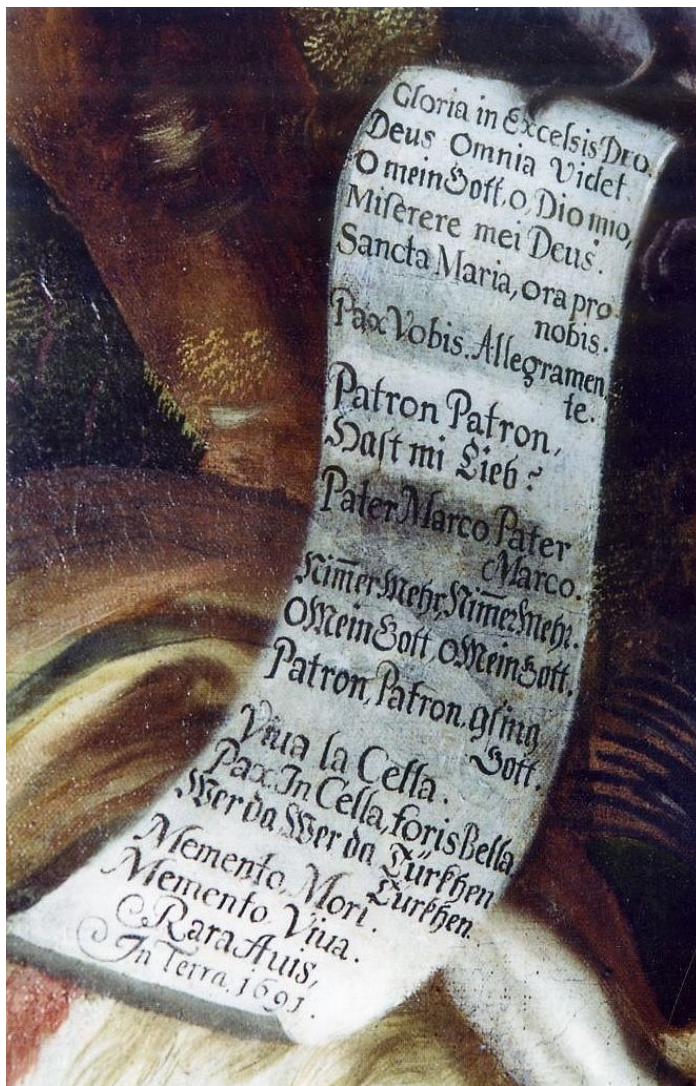 Gloria in Excelsis DEO.
Deus Omnia Videt.
O mein Gott, o, Dio mio,
Miserere mei Deus.
Sancta Maria, ora pro
nobis.
Pax Vobis. Allegramen,
te.
Patron Patron,
Hast mi Lieb?
Pater Marco Pater
Marco.
Nim̅er Mehr, Nim̅er mehr.
O Mein Gott, O Mein Gott.
Patron, Patron. gsing
Gott.
Viua la Cella.
Pax In Cella, foris Bella
Wer da, Wer da, Türkhen
Türkhen.
Memento, Mori.
Memento Viua.
Rara Auis,
In Terra, 1691.